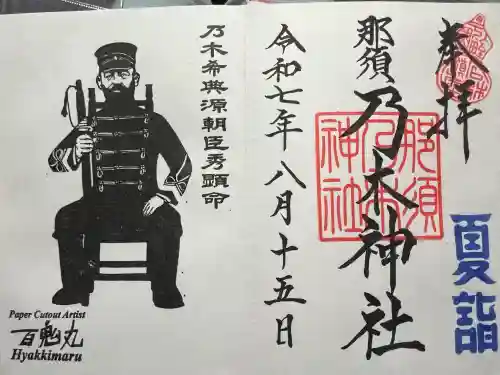 奉拝
夏詣
那須乃木神社
那須乃木神社
令和七年八月十五日
乃木希典源朝臣秀顕命
Paper Cutout Artist
百鬼丸
Hyakkimaru